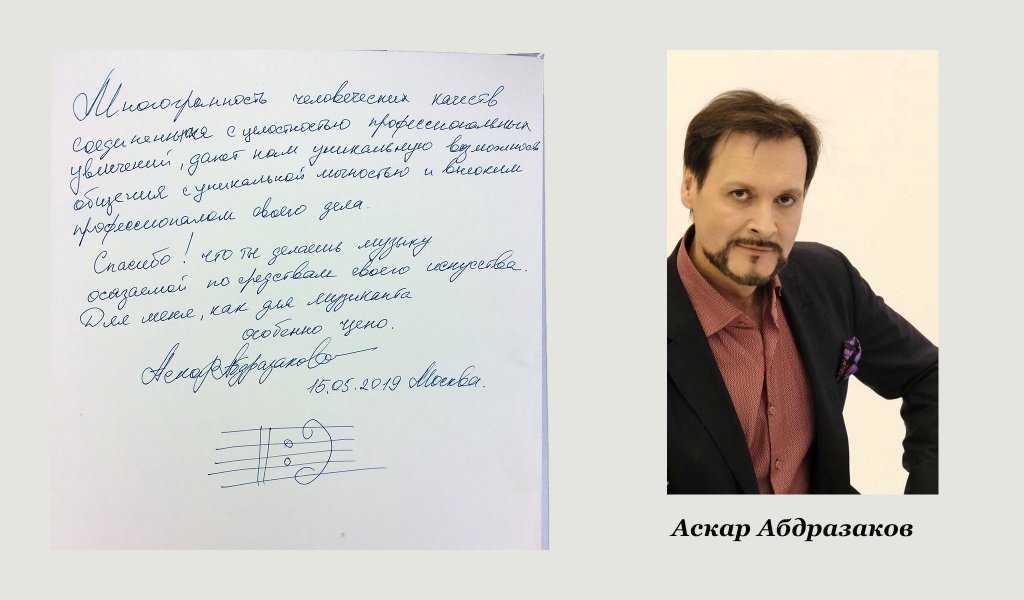 Многогранность человеческих качеств
соединенная с целостностью профессиональных
увлечений, дают нам уникальную возможность
общения с уникальной личностью и высоким
профессионалом своего дела.
Спасибо! что ты делаешь музыку
осязаемой по средствам своего искусства.
Для меня, как для музыканта
особенно ценно.
Аскар Абдразаков
15.05.2019 Москва.
Аскар Абдразаков